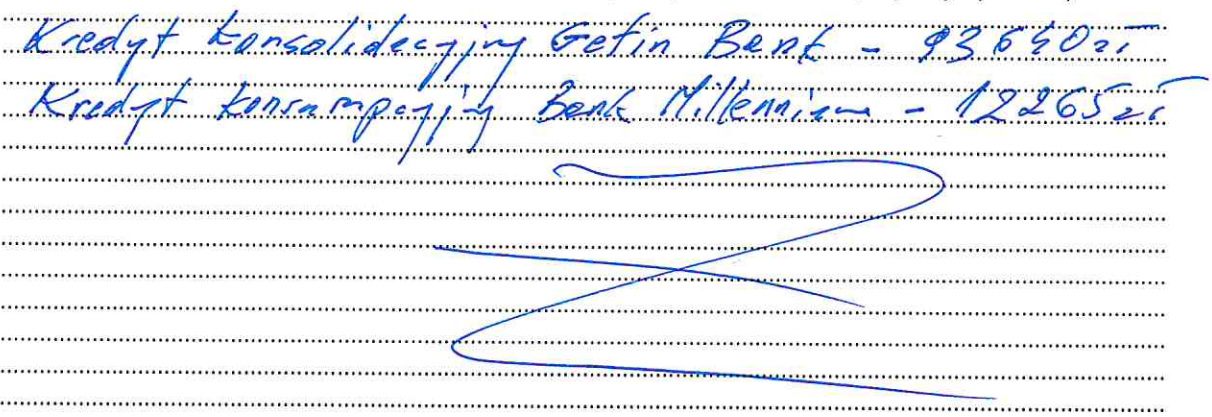 Kredyt konsolidacyjny Getin Bank - 93 640 zł
Kredyt konsumpcyjny Bank Millennium - 12265 zł